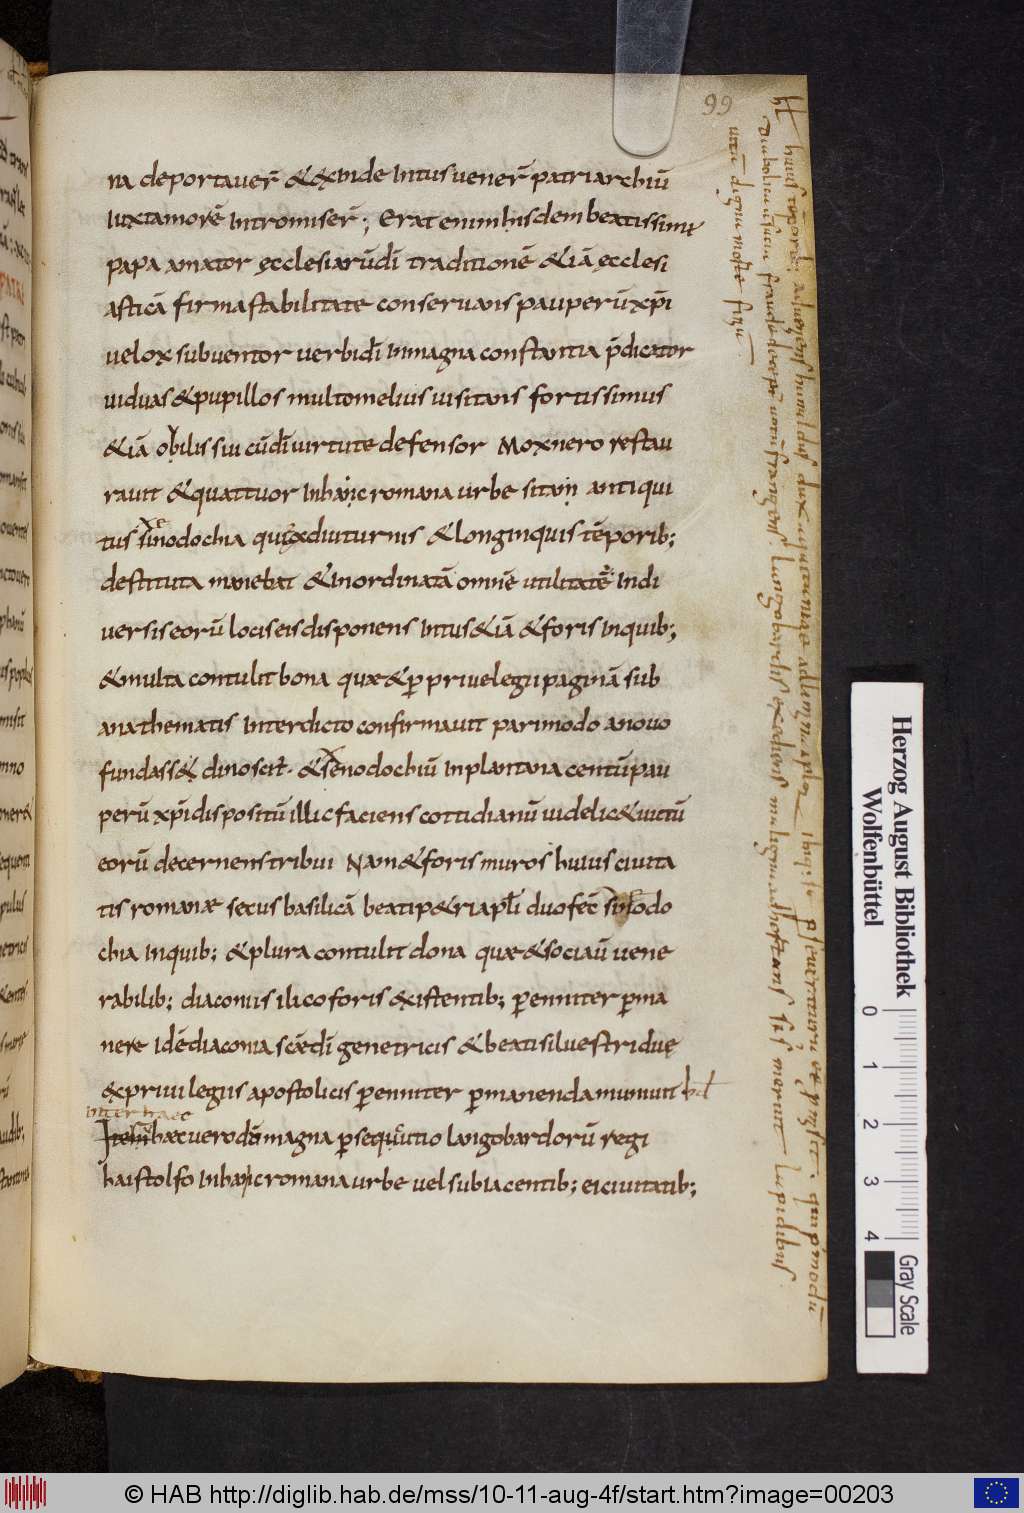 99
na deportauer̄ & exinde intus uener̄ patriarchiū
iuxta morē intromiser̄; Erat enim hisdem beatissimus
papa amator ęcclesiarū dī traditionē & iā ęcclesi
asticā firma stabilitate conseruans pauperū xp̄i
uelox subuentor uerbi dī in magna constantia p̄dicator
uiduas & pupillos multo melius uisitans fortissimus
& iā obilis sui cū dī uirtute defensor Mox nero restau
rauit & quattuor in hanc romana urbe sita antiqui
tus sinodochia qui ex diuturnis & longinquis tēporib;
destituta manebat & inordinatā omnē utilitatē indi
uersis eorū locis eis disponens intus & iā & foris inquib;
& multa contulit bona quæ & ꝑ priuelegii paginā sub
anathematis interdicto confirmauit pari modo a nouo
fundass& dinoscit̄. & senodochiū in plantana centū pau
perū xp̄i dispositū illic faciens cottidianū uidelic& uictū
eorū decernens tribui Nam & foris muros huius ciuita
tis romanæ secus basilicā beati p&ri apl̄i duo fec̄ odo
chia inquib; & plura contulit dona quæ & sociaū uene
rabilib; diaconiis ilico foris existentib; ꝑenniter ꝑma
nere idē diaconia sc̄ę dī genetricis & beati siluestri duę
& priuilegiis apostolicis ꝑenniter ꝑmanenda muniuit
inter haec
hæc uero dū magna ꝑsequutio langobardorū regi
haistolfo in hanc romana urbe uel subiacentib; ei ciuitatib;
huius tēporib; adueniens hunaldus dux aquitaniae ad limina aplo
diabolica fraude decept̄ uotū frangens langobardis
uitā digna morte finiu
Herzog August Bibliothek
Wolfenbüttel
0 1 2 3 4
Gray Scale
© HAB http://diglib.hab.de/mss/10-11-aug-4f/start.htm?image=00203